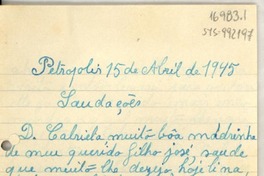 16983.1
SYS-992197
Petropolis 15 de Abril de 1945
Saudações
D. Cabriela muito bôa madrinha
de meu querido filho josé, saude
que muito lhe desejo, hoje